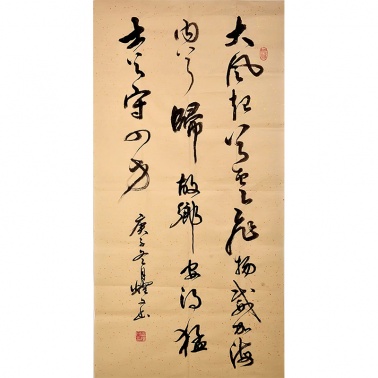 大風起兮雲飛揚威加海
內兮歸故鄉安得猛
士兮守四方
庚子冬月